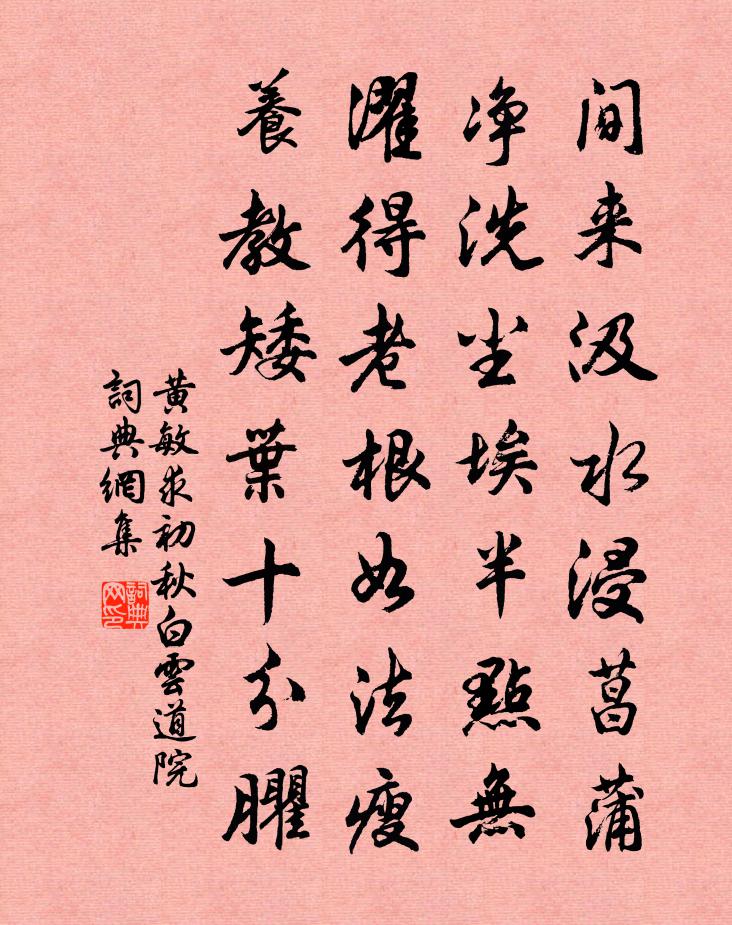 间来汲水浸菖蒲
净洗尘埃半點無
濯得老根如法瘦
養教矮葉十分臞
黄敏求初秋白雲道院
詞典網集
詞典网印